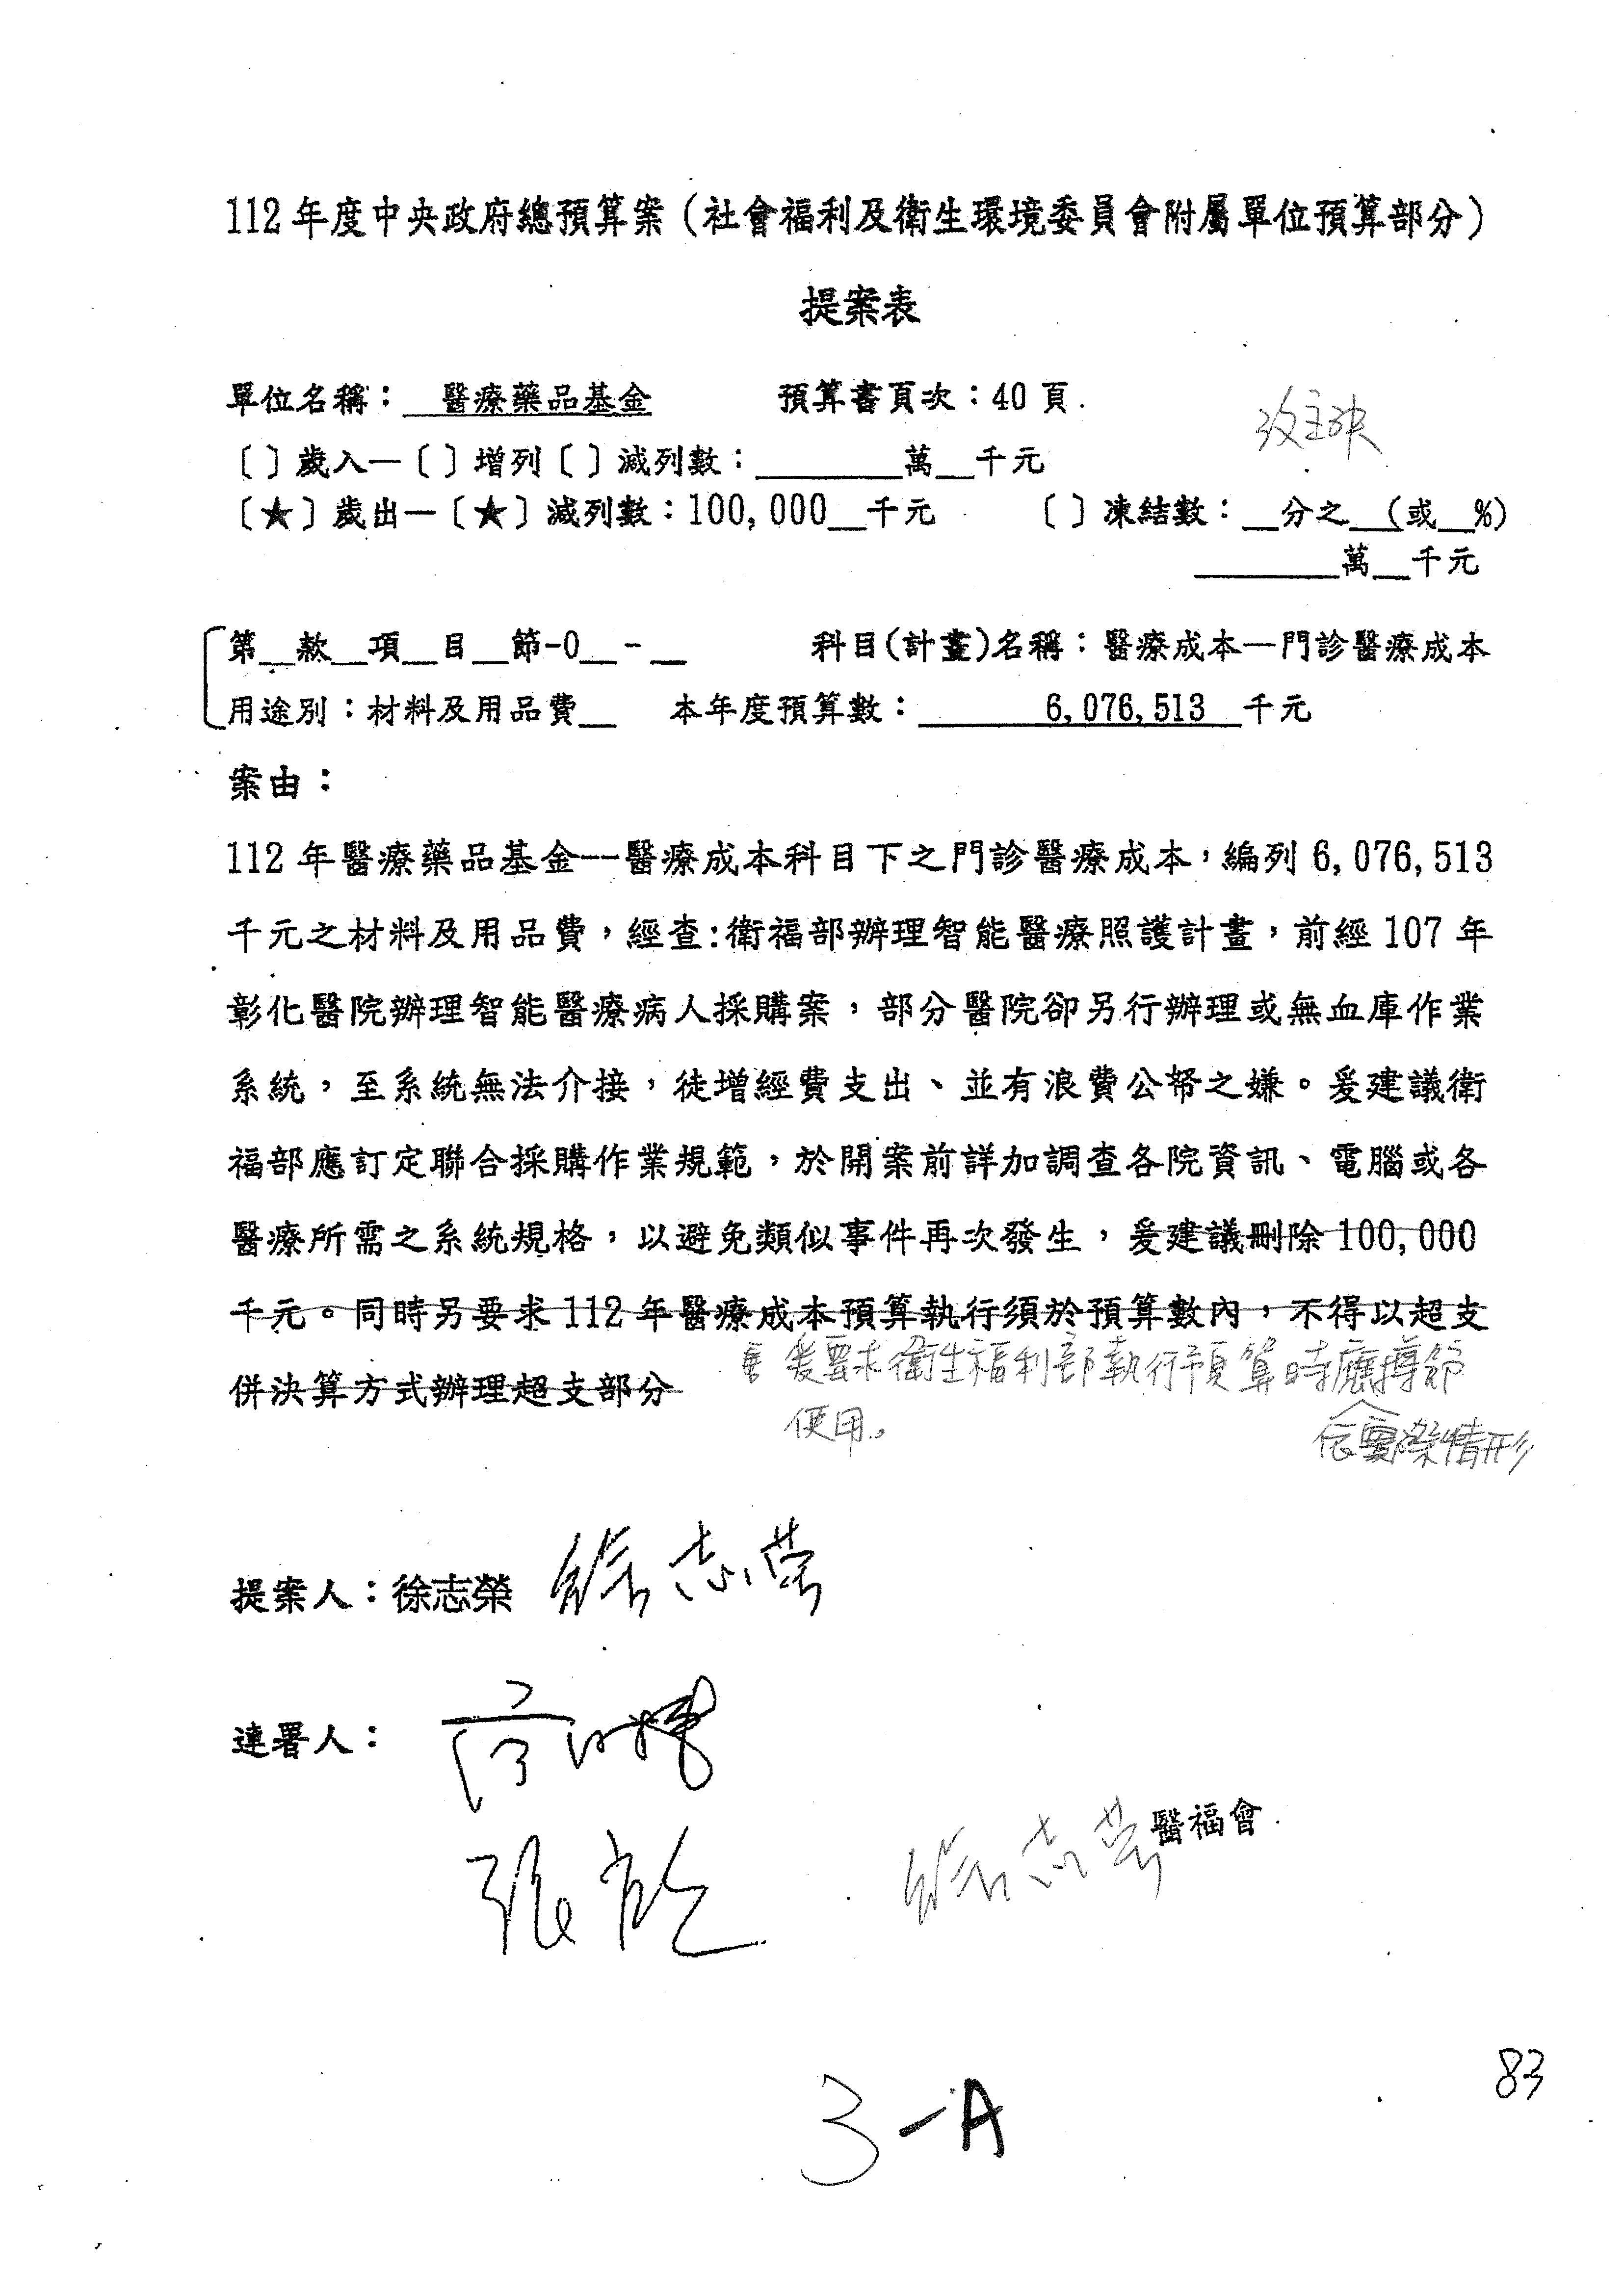 112年度中央政府總預算案（社會福利及衛生環境委員會附屬單位預算部分）
提案表
單位名稱：__醫療藥品基金 預算書頁次：40頁
改主決
〔〕歲入—〔〕增列〔〕減列數：________萬__千元
〔★〕歲出—〔★〕減列數：100,000__千元 〔〕凍結數：__分之__(或__%)
________萬__千元
第__款__項__目__節-0__-__ 科目(計畫)名稱：醫療成本—門診醫療成本
用途別：材料及用品費__ 本年度預算數：______6,076,513__千元
案由：
112年醫療藥品基金—醫療成本科目下之門診醫療成本，編列6,076,513
千元之材料及用品費，經查:衛福部辦理智能醫療照護計畫，前經107年
彰化醫院辦理智能醫療病人採購案，部分醫院卻另行辦理或無血庫作業
系統，至系統無法介接，徒增經費支出、並有浪費公帑之嫌。爰建議衛
福部應訂定聯合採購作業規範，於開案前詳加調查各院資訊、電腦或各
醫療所需之系統規格，以避免類似事件再次發生，爰建議刪除100,000
千元。同時另要求112年醫療成本預算執行須於預算數內，不得以超支
併決算方式辦理超支部分
爰要求衛生福利部執行預算時應撙節
使用。
依實際情形
提案人：徐志榮 徐志榮
連署人：
徐志榮 醫福會
83
3-A